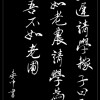 遲請學稼子曰
如老農請學為
吾不如老圃